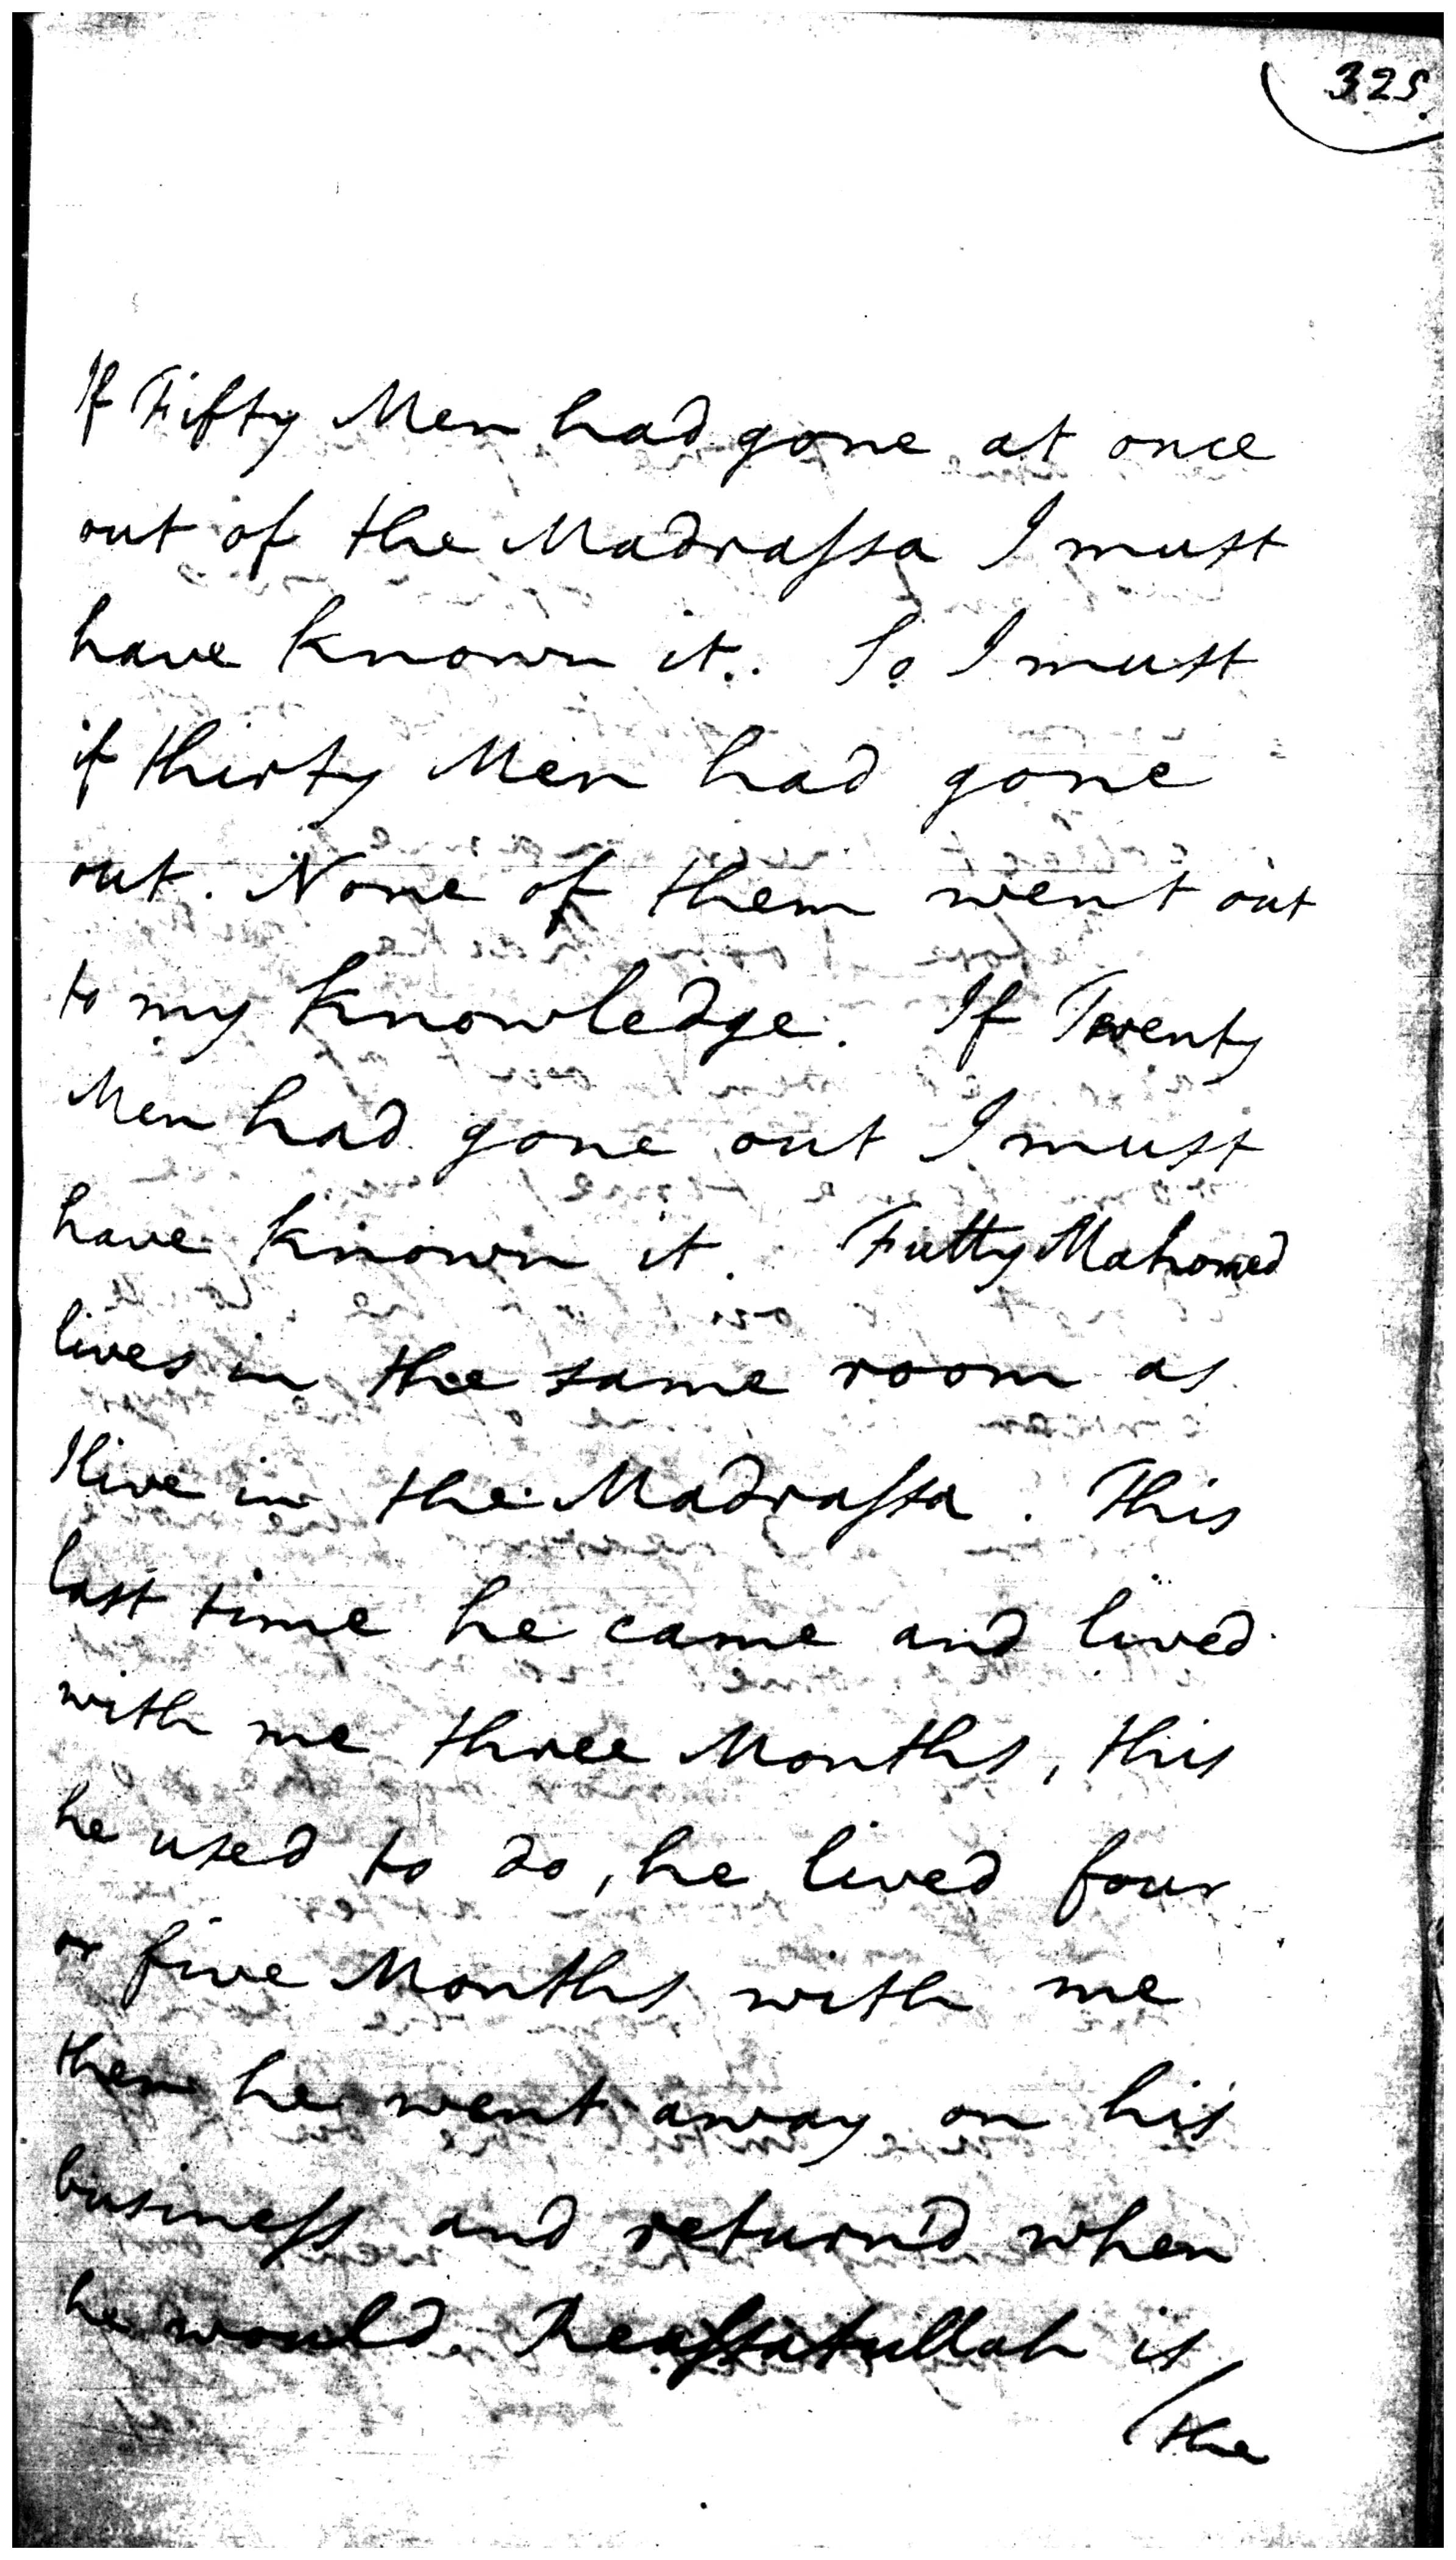 325.
If Fifty Men had gone at once
out of the Madrassa I must
have known it. So I must
if thirty Men had gone
out. None of them went out
to my knowledge. If Twenty
Men had gone out I must
have known it. Futty Mahomed
lives in the same room as
I live in the Madrassa. This
last time he came and lived
with me three Months, this
he used to do, he lived four
or five Months with me
then he went away on his
business and return'd when
he would. Reassatullah is
the